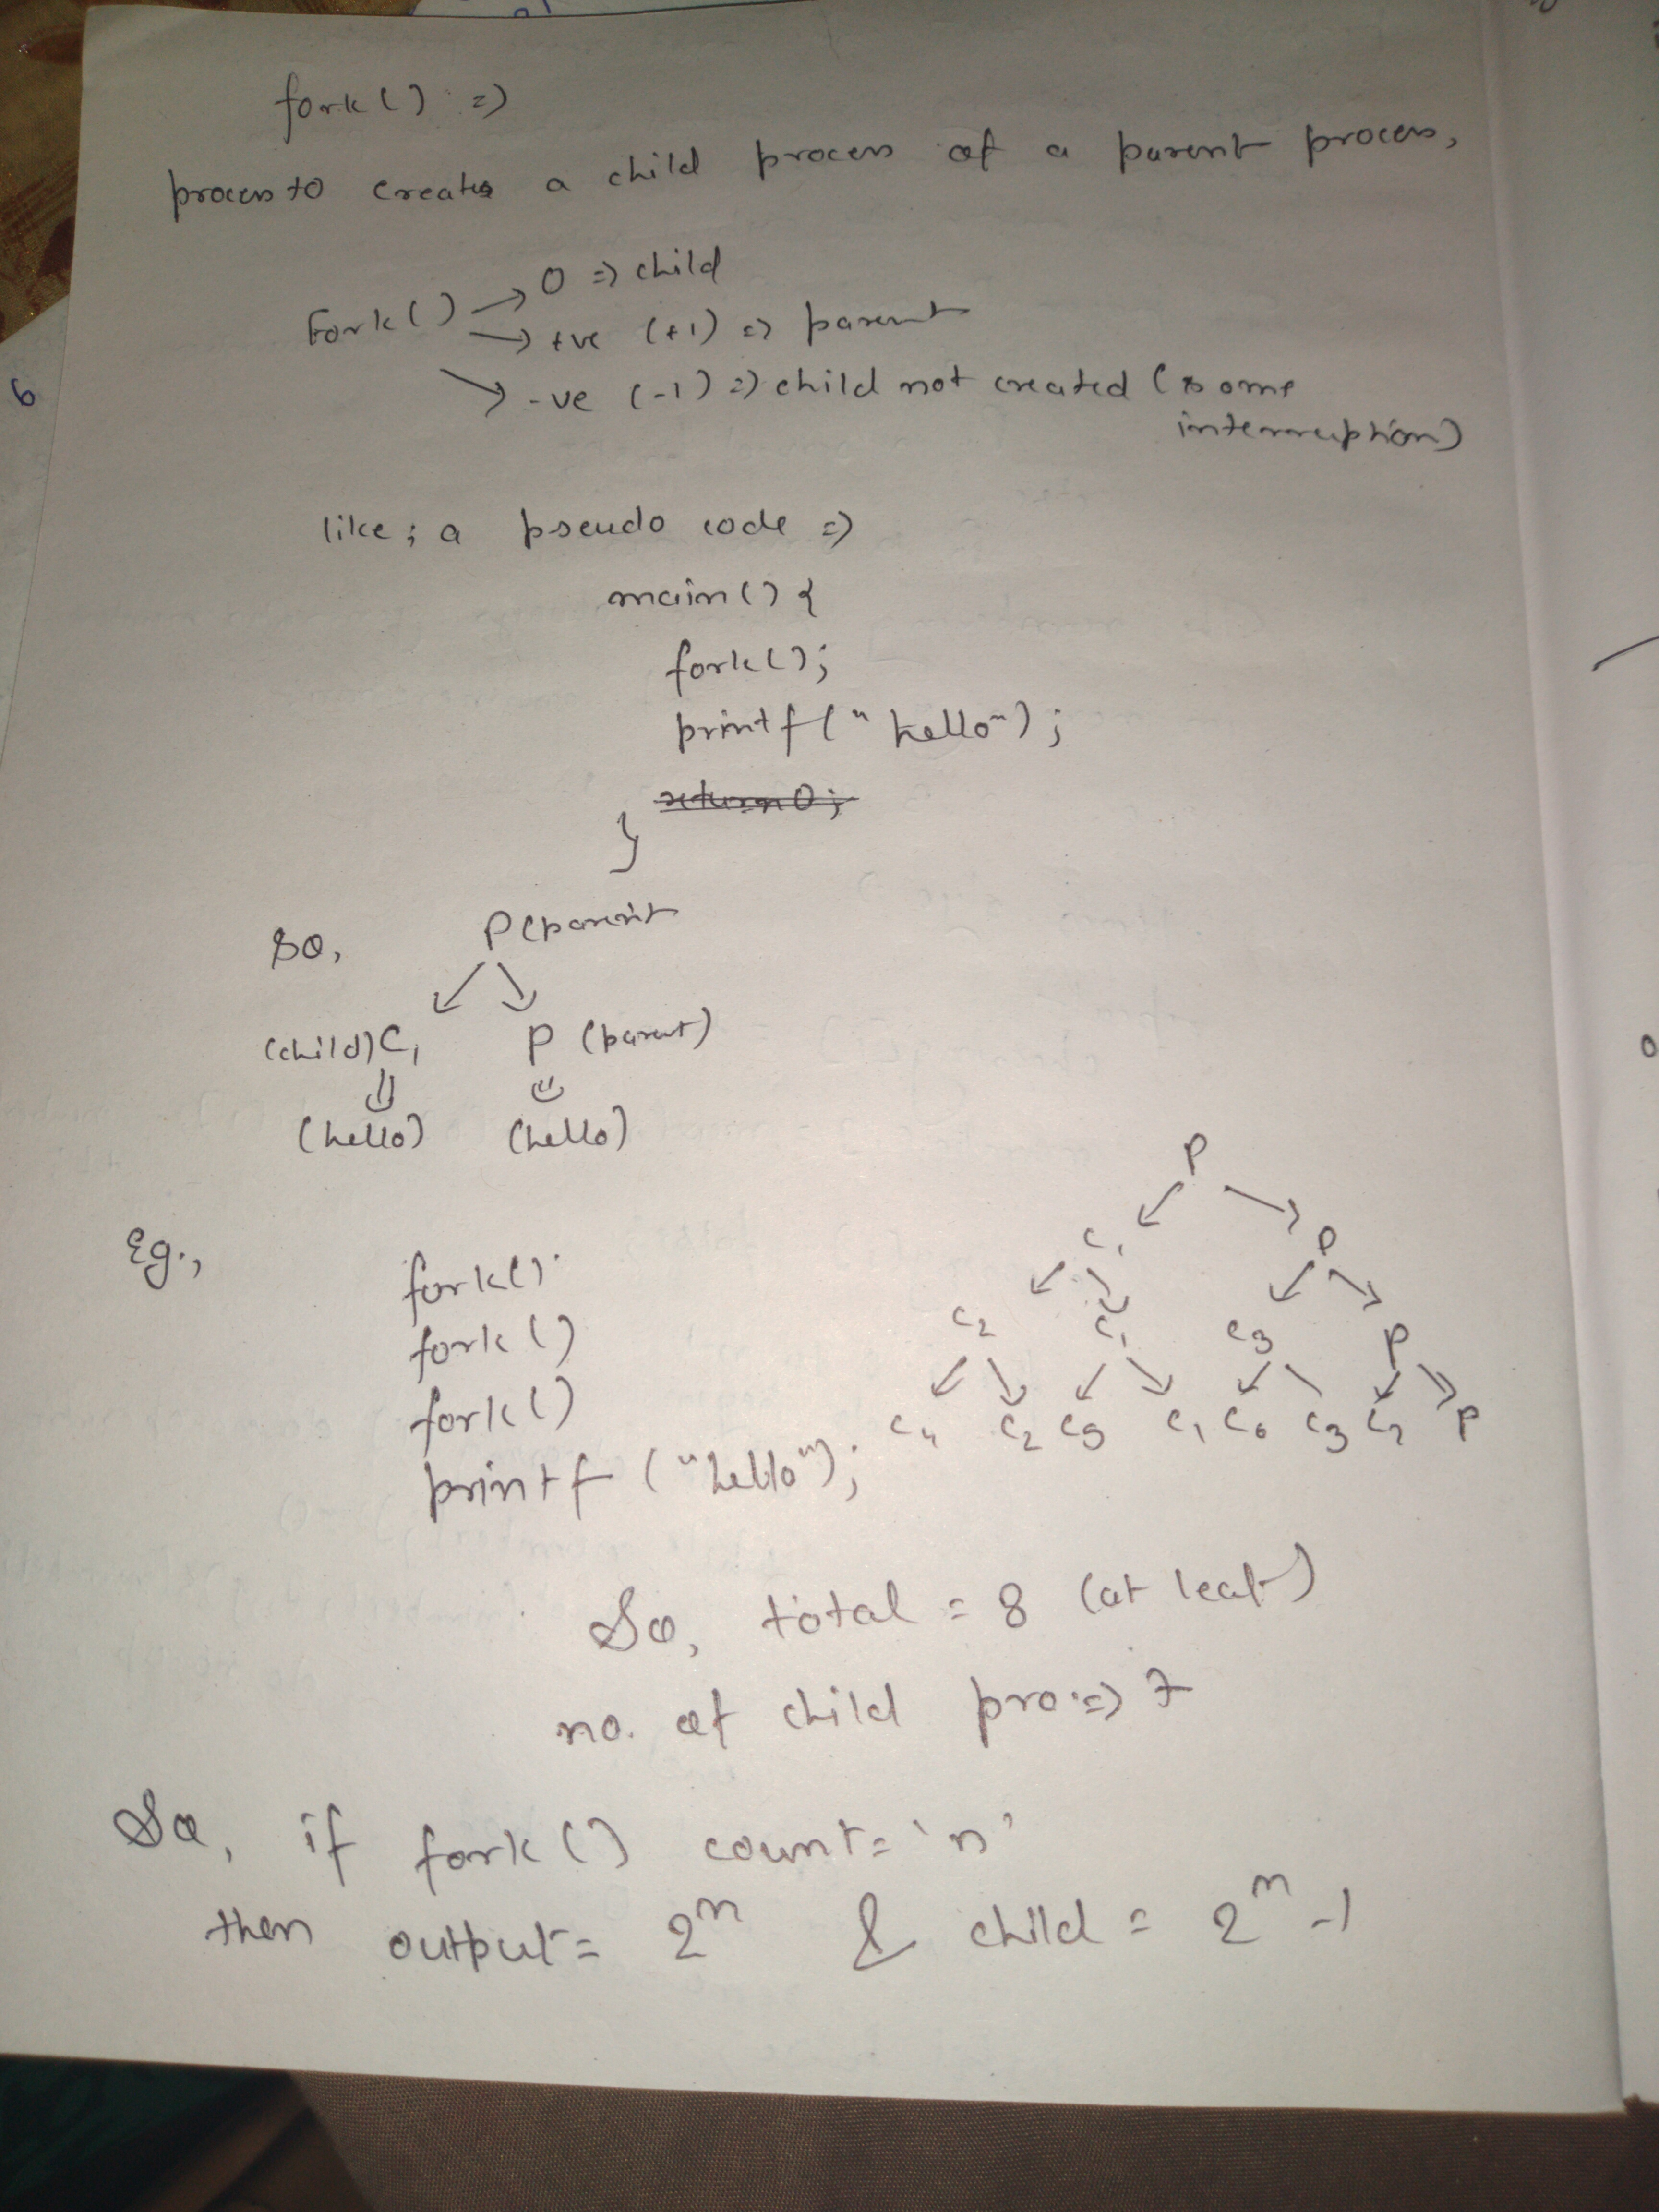 fork() =>
process to creates a child process of a parent process,
Fork() → 0 => child
→ +ve (+1) => parent
→ -ve (-1) => child not created (some
interruption)
like; a pseudo code =>
main() {
fork();
printf("hello");
return 0;
}
So, P(parent
(child) C1 P (parent)
(hello) (hello)
Eg.,
fork()
fork()
fork()
printf("hello");
P
C1 P
C2 C1 C3 P
C4 C2 C5 C1 C6 C3 C7 P
So, total = 8 (at leaf)
no. of child pro => 7
So, if fork() count = 'n'
then output = 2^n & child = 2^n - 1
6